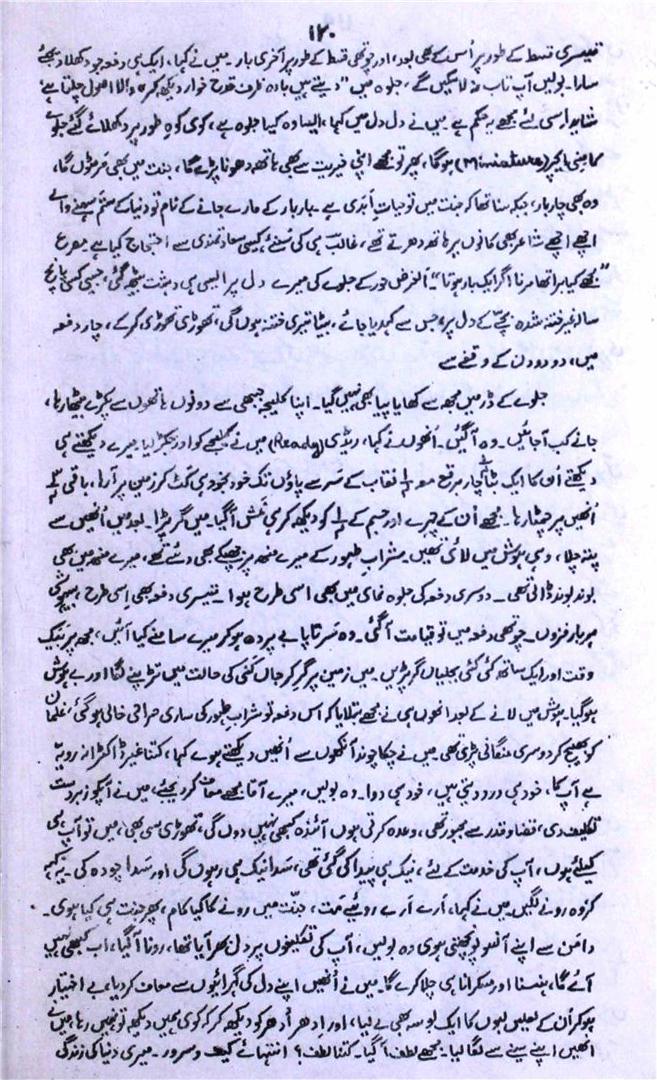 ۱۲۰
تیسری قسط کے طور پر اُس کے بھی بعد، اور چوتھی قسط کے طور پر آخری بار۔ میں نے کہا، ایک ہی دفعہ جو دکھلا دیجئے
سارا۔ بولیں آپ تاب نہ لا سکیں گے، جلوہ میں "دیتے ہیں بادہ ظرف قدح خوار دیکھ کر" والا اصول چلتا ہے
شاید اسی لئے مجھے یہ حکم ہے۔ میں نے دل دل میں کہا، ایسا وہ کیا جلوہ ہے، کوئی کوہِ طور پر دکھلائے گئے جلوے
کا مِنی ایچر (Miniature) ہوگا، پھر تو مجھے اپنی خیریت سے بھی ہاتھ دھونا پڑے گا، جنت میں بھی مرَ مڑوں گا،
وہ بھی چار بار، جبکہ سنا تھا کہ جنت میں تو حیاتِ اَبدی ہے۔ بار بار کے مارے جانے کے نام تو دنیا کے ستم سہنے والے
اچھے اچھے شاعر بھی کانوں پر ہاتھ دھرتے تھے، غالب ہی کی سُنئے کیسی سعادتمندی سے احتجاج کیا ہے مصرع
"مجھے کیا برا تھا مرنا اگر ایک بار ہوتا"۔ الغرض حور کے جلوے کی میرے دل پر ایسی ہی دہشت بیٹھ گئی، جیسی کسی پانچ
سالہ غیر ختنہ شدہ بچے کے دل پر، جس سے کہدیا جائے، بیٹا تیری ختنہ ہوں گی، تھوڑی تھوڑی کرکے، چار دفعہ
میں، دو دو دن کے وقفے سے
جلوے کے ڈر میں مجھ سے کھایا پیا بھی نہیں گیا۔ اپنا کلیجہ جبھی سے دونوں ہاتھوں سے پکڑے بیٹھا رہا،
جانے کب آ جائیں۔ وہ آ گئیں۔ اُنھوں نے کہا، ریڈی (Ready) میں نے کلیجے کو اور جکڑ لیا۔ میرے دیکھتے ہی
دیکھتے اُن کا ایک بٹا چار برقع مو ۱/۴ نقاب کے سر سے پاؤں تک خود بخود ہی کٹ کر زمین پر آ رہا، باقی ۳/۴
اُنھیں پر چمٹا رہا۔ مجھے اُن کے چہرے اور جسم کے ۱/۴ کو دیکھ کر ہی غش آ گیا۔ میں گر پڑا۔ بعد میں اُنھیں سے
پتہ چلا، وہی ہوش میں لائی تھیں۔ شرابِ طہور کے میرے منھ پر چھپکے بھی دئے تھے، میرے منھ میں بھی
بوند بوند ڈالی تھی۔ دوسری دفعہ کی جلوہ نمائی میں بھی اسی طرح ہوا۔ تیسری دفعہ بھی اِسی طرح، بیہوشی
ہر بار فزوں۔ چوتھی دفعہ میں تو قیامت آ گئی۔ وہ سَر تا پا بے پردہ ہو کر میرے سامنے کیا آئیں، مجھ پر بیک
وقت اور ایک ساتھ کئی کئی بجلیاں گر پڑیں۔ میں زمین پر گر کر جاں کنی کی حالت میں تڑپنے لگا اور بے ہوش
ہو گیا۔ ہوش میں لانے کے بعد انھوں ہی نے مجھے بتلایا کہ اس دفعہ تو شرابِ طہور کی ساری صراحی خالی ہو گئی، غلمان
کو بھیج کر دوسری منگانی پڑی تھی۔ میں نے چکا چوند آنکھوں سے اُنھیں دیکھتے ہوے کہا، کتنا غیر ڈاکٹرانہ رویہ
ہے آپ کا، خود ہی درد دیتی ہیں، خود ہی دوا۔ وہ بولیں، میرے آقا مجھے معاف کر دیجئے، میں نے آپکو زبردست
تکلیف دی، قضا و قدر سے مجبور تھی، وعدہ کرتی ہوں آئندہ کبھی نہیں دوں گی، تھوڑی سی بھی، میں تو آپ ہی
کیلئے ہوں، آپ کی خدمت کے لئے، نیک ہی پیدا کی گئی تھی، سَدا نیک ہی رہوں گی اور سَدا چودہ کی۔ یہ کہہ
کر وہ رونے لگیں۔ میں نے کہا، اَرے اَرے، روئیے مت، جنّت میں رونے کا کیا کام، پھر جنت ہی کیا ہوی۔
دامن سے اپنے آنسو پونچھتی ہوی وہ بولیں، آپ کی تکلیفوں پر دل بھر آیا تھا، رونا آ گیا، اب کبھی نہیں
آئے گا، ہنسنا اور مسکرانا ہی چلا کرے گا۔ میں نے اُنھیں اپنے دل کی گہرائیوں سے معاف کر دیا، بے اختیار
ہو کر اُن کے لعلیں لبوں کا ایک بوسہ بھی لے لیا، اور اِدھر اُدھر کو دیکھ کر کہ کوی ہمیں دیکھ تو نہیں رہا، میں نے
انھیں اپنے سینے سے لگا لیا۔ مجھے لطف آ گیا۔ کتنا لطف؟ انتہائے کیف و سرور۔ میری دنیا کی زندگی